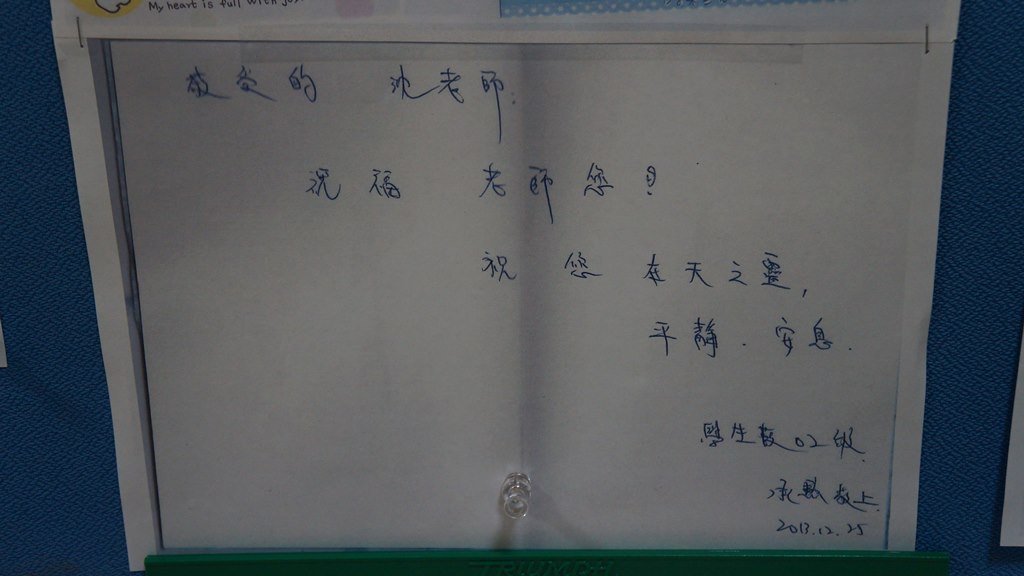 My heart is full with joy.
敬愛的 沈老師:
祝福 老師您!
祝 您 在天之靈,
平靜.安息.
學生數02級
敬上
2013.12.25
TRIUMPH